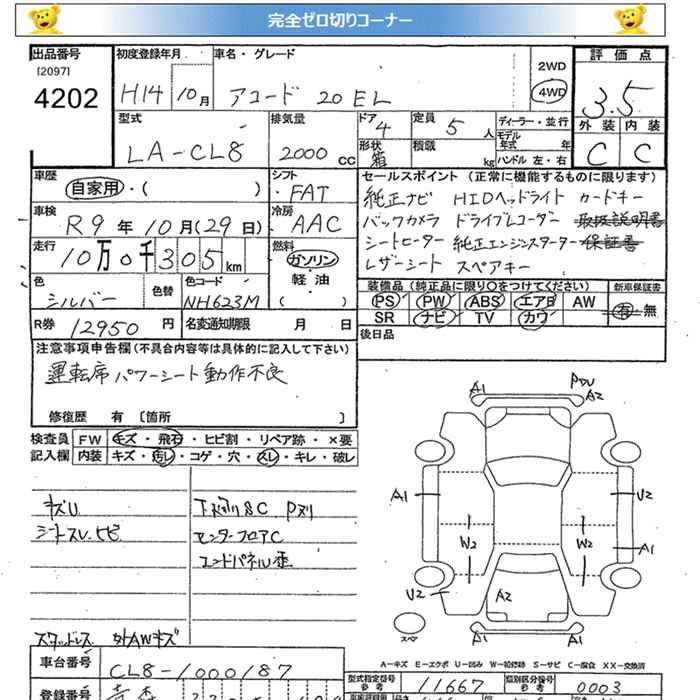 完全ゼロ切りコーナー
出品番号
[2097]
4202
初度登録年月
H14 10月
車名・グレード
アコード 20EL
2WD
4WD
評価点
3.5
外装 内装
C C
型式
LA-CL8
排気量
2000 cc
ドア
4
定員
5 人
形状
箱
積載
kg
ディーラー・並行
モデル年式 年
ハンドル 左・右
車歴
自家用・( )
シフト
FAT
車検
R9年10月(29日)
冷房
AAC
走行
10万0千305km
燃料
ガソリン
軽油
( )
色
シルバー
色替
色コード
NH623M
R券 12950 円
名変通知期限 月 日
セールスポイント (正常に機能するものに限ります)
純正ナビ HIDヘッドライト カードキー
バックカメラ ドライブレコーダー 取扱説明書
シートヒーター 純正エンジンスターター 保証書
レザーシート スペアキー
装備品 (純正品に限り○をつけてください)
新車保証書
PS PW ABS エアB AW
SR ナビ TV カワ
有・無
後日品
注意事項申告欄(不具合内容等は具体的に記入して下さい)
運転席パワーシート動作不良
修復歴 有 [箇所 ]
検査員 FW キズ・飛石・ヒビ割・リペア跡・×要
記入欄 内装 キズ・汚レ・コゲ・穴・スレ・キレ・破レ
キズU
シートスレ.ヒビ
下廻りSC Pヌリ
センターフロアC
エンドパネル歪
スタッドレス 外AWキズ
A1
PDU
A2
A1
U2
W2
W2
A1
U2
A2
スペア
A1
A1
A-キズ E-エクボ U-凹み W-補修跡 S-サビ C-腐食 XX-交換済
車台番号
CL8-1000187
型式指定番号
参考
11667
類別区分番号
参考
0003
登録番号